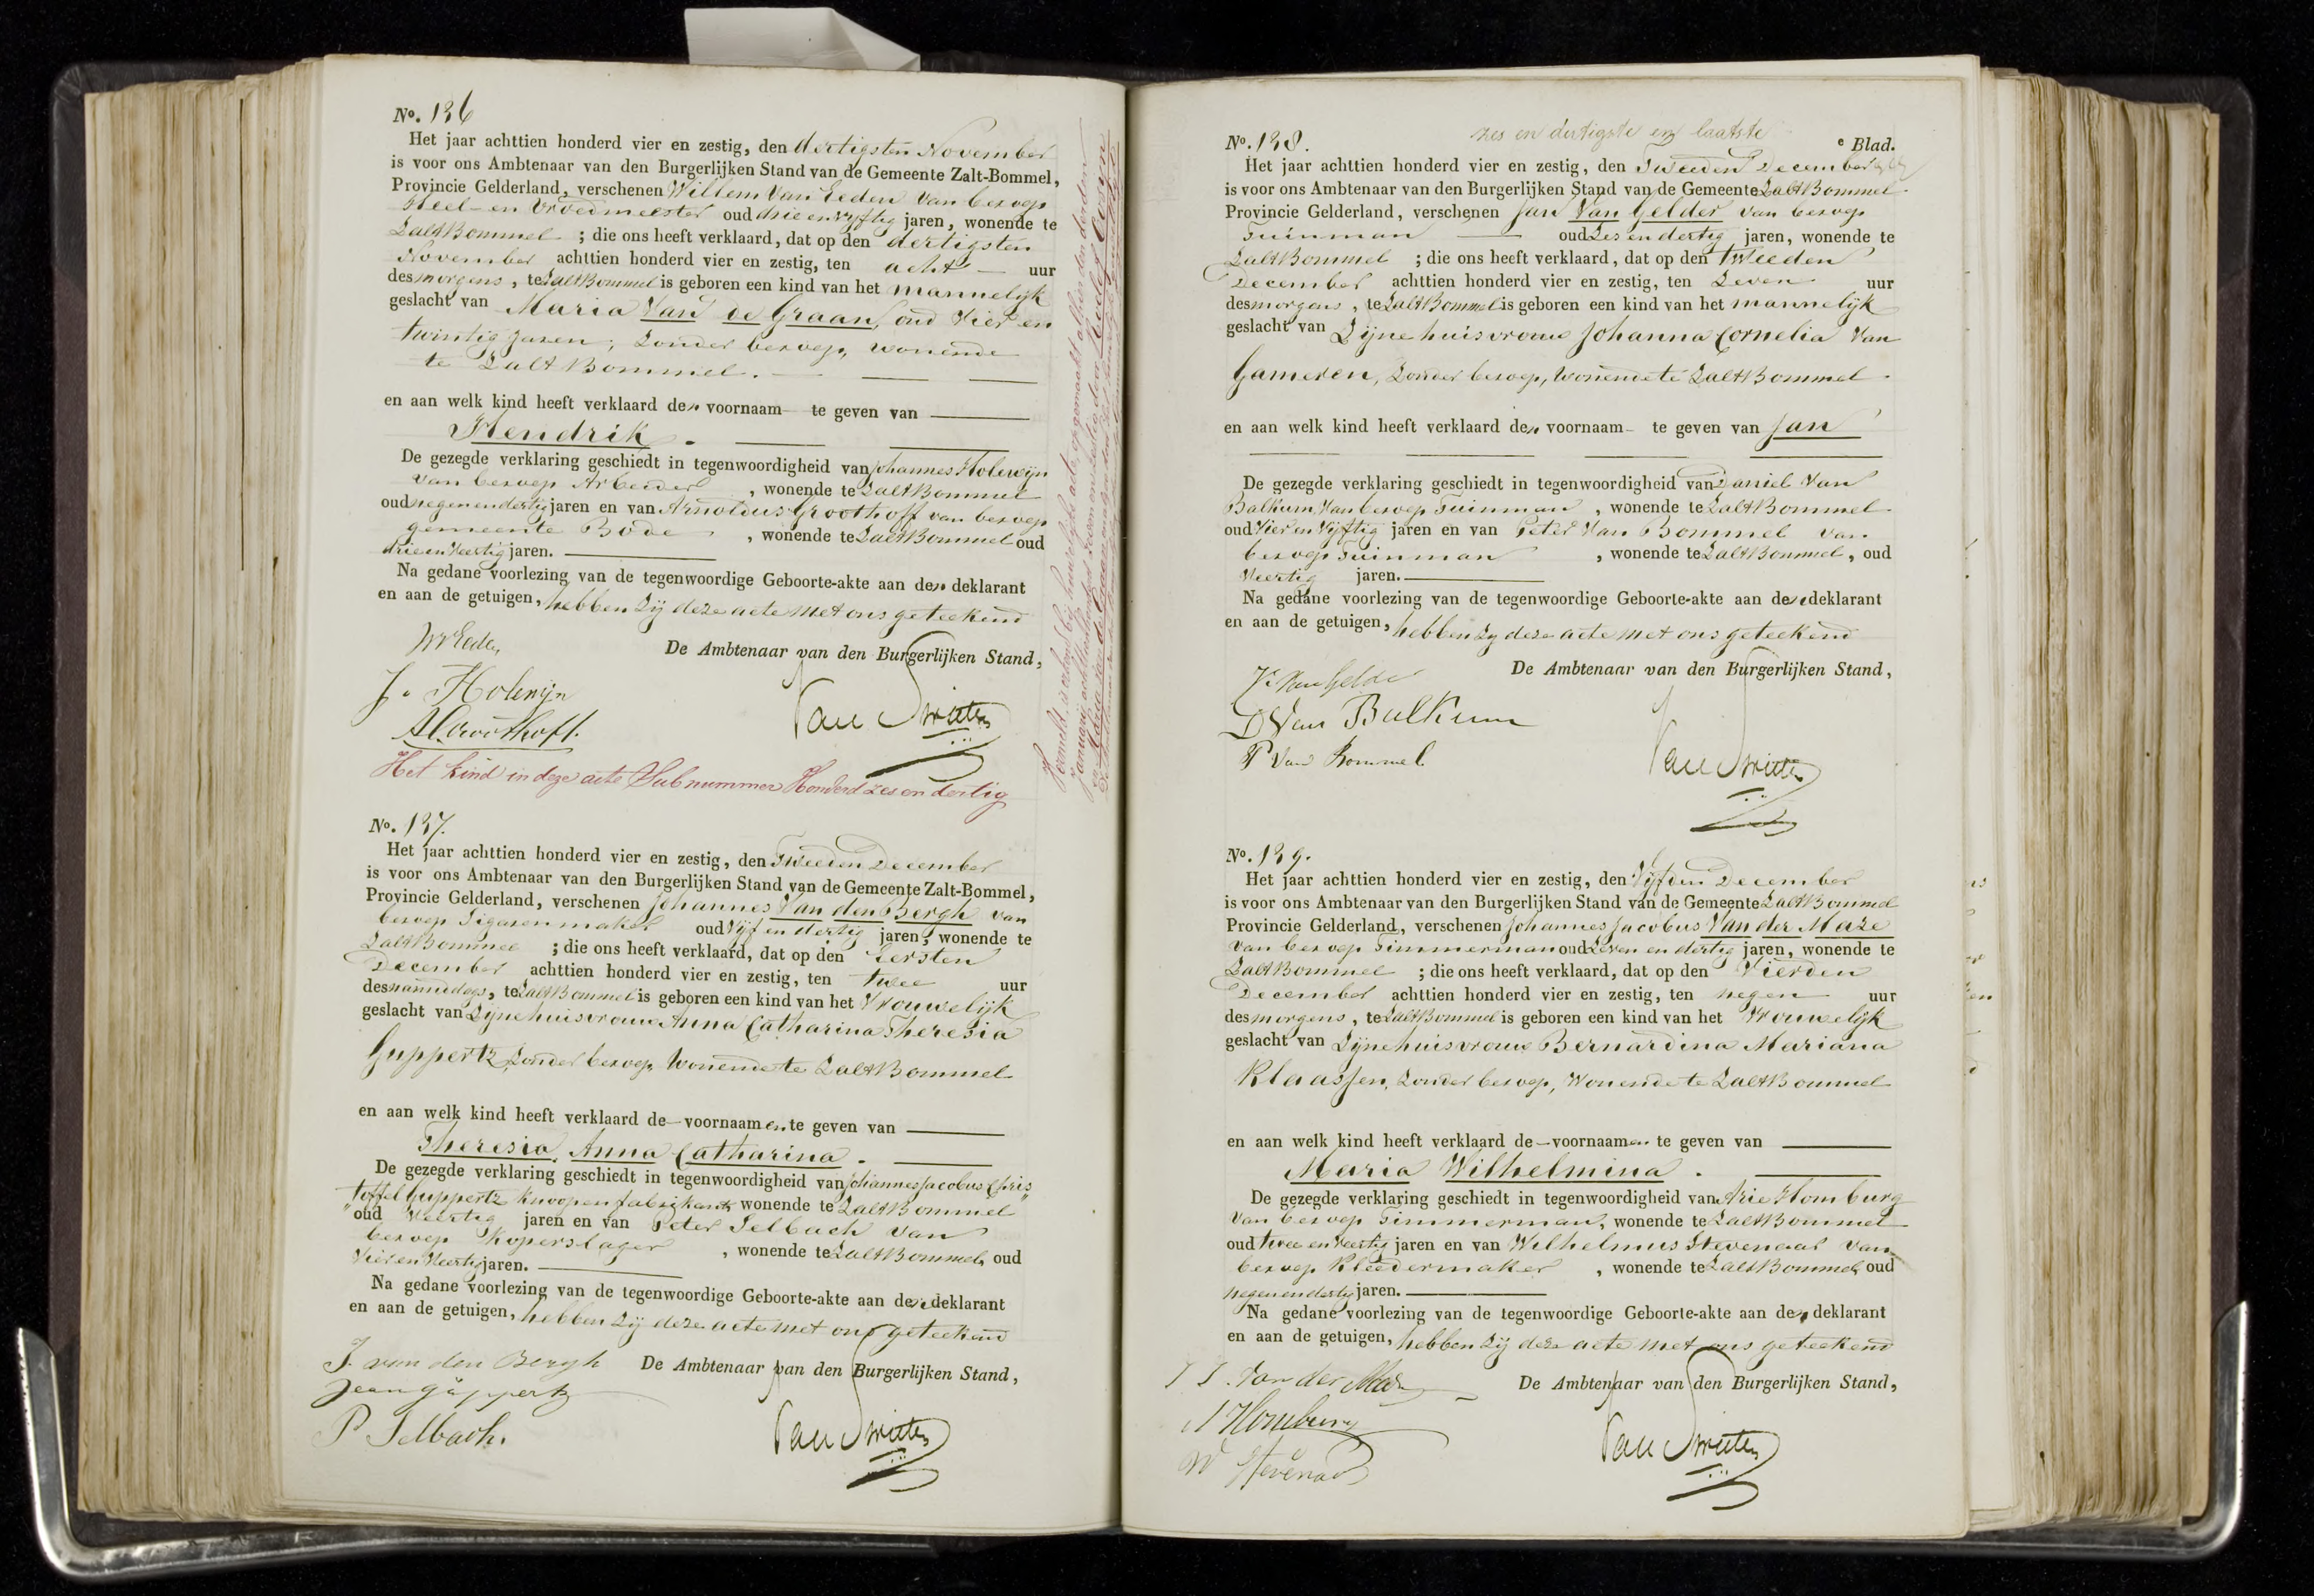 No. 136
Het jaar achttien honderd vier en zestig, den dertigsten November
is voor ons Ambtenaar van den Burgerlijken Stand van de Gemeente Zalt-Bommel,
Provincie Gelderland, verschenen Willem Van Eeden van beroep
Heel- en Vroedmeester oud drie en vyftig jaren, wonende te
ZaltBommel ; die ons heeft verklaard, dat op den dertigsten
November achttien honderd vier en zestig, ten acht — uur
des morgens, te ZaltBommel is geboren een kind van het mannelijk
geslacht van Maria Van de Graan, oud Vier en
twintig jaren, zonder beroep, wonende
te ZaltBommel. — — —
en aan welk kind heeft verklaard den voornaam — te geven van —
Hendrik. — —
De gezegde verklaring geschiedt in tegenwoordigheid van Johannes Holewijn
van beroep Arbeider, wonende te ZaltBommel
oud negen en dertig jaren en van Arnoldus Groothoff van beroep
gemeente Bode, wonende te ZaltBommel oud
drie en Veertig jaren. —
Na gedane voorlezing van de tegenwoordige Geboorte-akte aan den deklarant
en aan de getuigen, hebben zij deze acte met ons geteekend
De Ambtenaar van den Burgerlijken Stand,
WvEeden
J. Holewijn
AGroothoff.
Het kind in deze acte Sub nummer Honderd zes en dertig
Vermeld, is erkend bij huwelijks acte, opgemaakt alhier den derden
Januarij achttienhonderd
en Maria van de Graan
No. 137.
Het jaar achttien honderd vier en zestig, den Tweeden December
is voor ons Ambtenaar van den Burgerlijken Stand van de Gemeente Zalt-Bommel,
Provincie Gelderland, verschenen Johannes Van den Bergh van
beroep Sigarenmaker oud Vijf en dertig jaren, wonende te
ZaltBommel ; die ons heeft verklaard, dat op den Eersten
December achttien honderd vier en zestig, ten twee uur
des namiddags, te ZaltBommel is geboren een kind van het Vrouwelijk
geslacht van Zijne huisvrouw Anna Catharina Theresia
Guppertz, zonder beroep, Wonende te ZaltBommel
en aan welk kind heeft verklaard de — voornaamen te geven van —
Theresia Anna Catharina. —
De gezegde verklaring geschiedt in tegenwoordigheid van Johannes Jacobus Chris
toffel Guppertz Knoopenfabrikant, wonende te ZaltBommel
oud Veertig jaren en van Peter Selbach van
beroep Koperslager, wonende te ZaltBommel, oud
Vier en Veertig jaren. —
Na gedane voorlezing van de tegenwoordige Geboorte-akte aan den deklarant
en aan de getuigen, hebben zij deze acte met ons geteekend
J. van den Bergh De Ambtenaar van den Burgerlijken Stand,
Jean Güppertz
P Selbach.
No. 138. zes en dertigste en laatste e Blad.
Het jaar achttien honderd vier en zestig, den Tweeden December
is voor ons Ambtenaar van den Burgerlijken Stand van de Gemeente ZaltBommel
Provincie Gelderland, verschenen Jan Van Gelder van beroep
Tuinman — oud Zes en dertig jaren, wonende te
ZaltBommel ; die ons heeft verklaard, dat op den tweeden
December achttien honderd vier en zestig, ten Zeven uur
des morgens, te ZaltBommel is geboren een kind van het mannelijk
geslacht van Zijne huisvrouw Johanna Cornelia Van
Gameren, zonder beroep, wonende te ZaltBommel
en aan welk kind heeft verklaard den voornaam — te geven van Jan
De gezegde verklaring geschiedt in tegenwoordigheid van Daniel Van
Balkum, Van beroep Tuinman, wonende te ZaltBommel
oud Vier en Vijftig jaren en van Peter Van Bommel van
beroep Tuinman, wonende te ZaltBommel, oud
Veertig jaren. —
Na gedane voorlezing van de tegenwoordige Geboorte-akte aan den deklarant
en aan de getuigen, hebben zy deze acte met ons geteekend
De Ambtenaar van den Burgerlijken Stand,
J. Van Gelder
D Van Balkum
P Van Bommel
No. 139.
Het jaar achttien honderd vier en zestig, den Vijfden December
is voor ons Ambtenaar van den Burgerlijken Stand van de Gemeente ZaltBommel
Provincie Gelderland, verschenen Johannes Jacobus Van der Maze
van beroep Timmerman oud Zeven en dertig jaren, wonende te
ZaltBommel ; die ons heeft verklaard, dat op den Vierden
December achttien honderd vier en zestig, ten negen uur
des morgens, te ZaltBommel is geboren een kind van het Vrouwelijk
geslacht van Zijne huisvrouw Bernardina Mariana
Klaassen, zonder beroep, Wonende te ZaltBommel
en aan welk kind heeft verklaard de — voornaamen te geven van —
Maria Wilhelmina. —
De gezegde verklaring geschiedt in tegenwoordigheid van Arie Homburg
Van beroep Timmerman, wonende te ZaltBommel
oud twee en veertig jaren en van Wilhelmus Stevenaar van
beroep Kleedermaker, wonende te ZaltBommel, oud
negen en dertig jaren. —
Na gedane voorlezing van de tegenwoordige Geboorte-akte aan den deklarant
en aan de getuigen, hebben zij deze acte met ons geteekend
J J. Van der Maze De Ambtenaar van den Burgerlijken Stand,
A Homburg
W Stevenaar